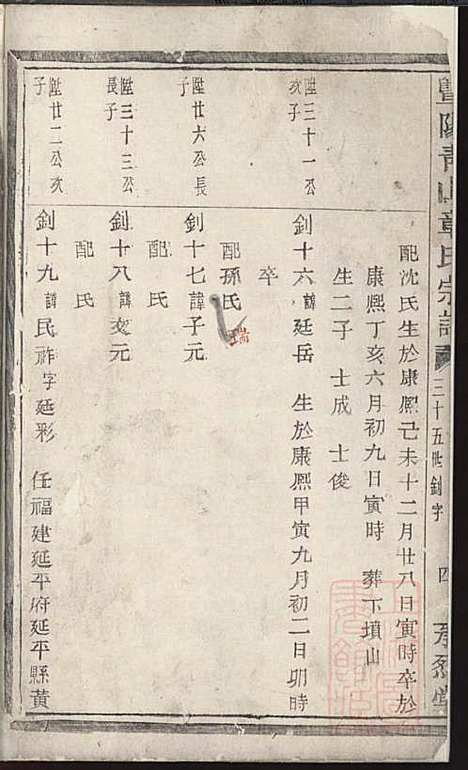 暨陽青山章氏宗譜 三十五世釗字 四
配沈氏生於康熙己未十二月廿八日寅時卒於
康熙丁亥六月初九日寅時 葬下墳山
生二子 士成 士俊
陞三十一公次子
釗十六諱廷岳 生於康熙甲寅九月初二日卯時
卒
配孫氏 瑞
陞廿六公長子
釗十七諱子元
配氏
陞三十三公長子
釗十八諱文元
配氏
陞廿二公次子
釗十九諱民祚字廷彩 任福建延平府延平縣黃